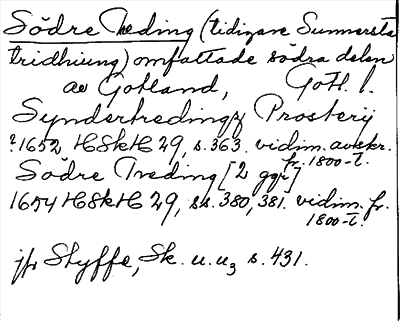 Södre Treding (tidigare Sunnersta
tridhiung) omfattade södra delen
av Gotland, Gotl. l.
Syndertredings Prosterij
?1652 HSkH 29, s.363. vidim. avskr.
fr. 1800-t.
Södre Treding [2 ggr]
1654 HSkH 29, ss. 380, 381. vidim. fr.
1800-t.
jfr Styffe, Sk. u. u₃ s.431.